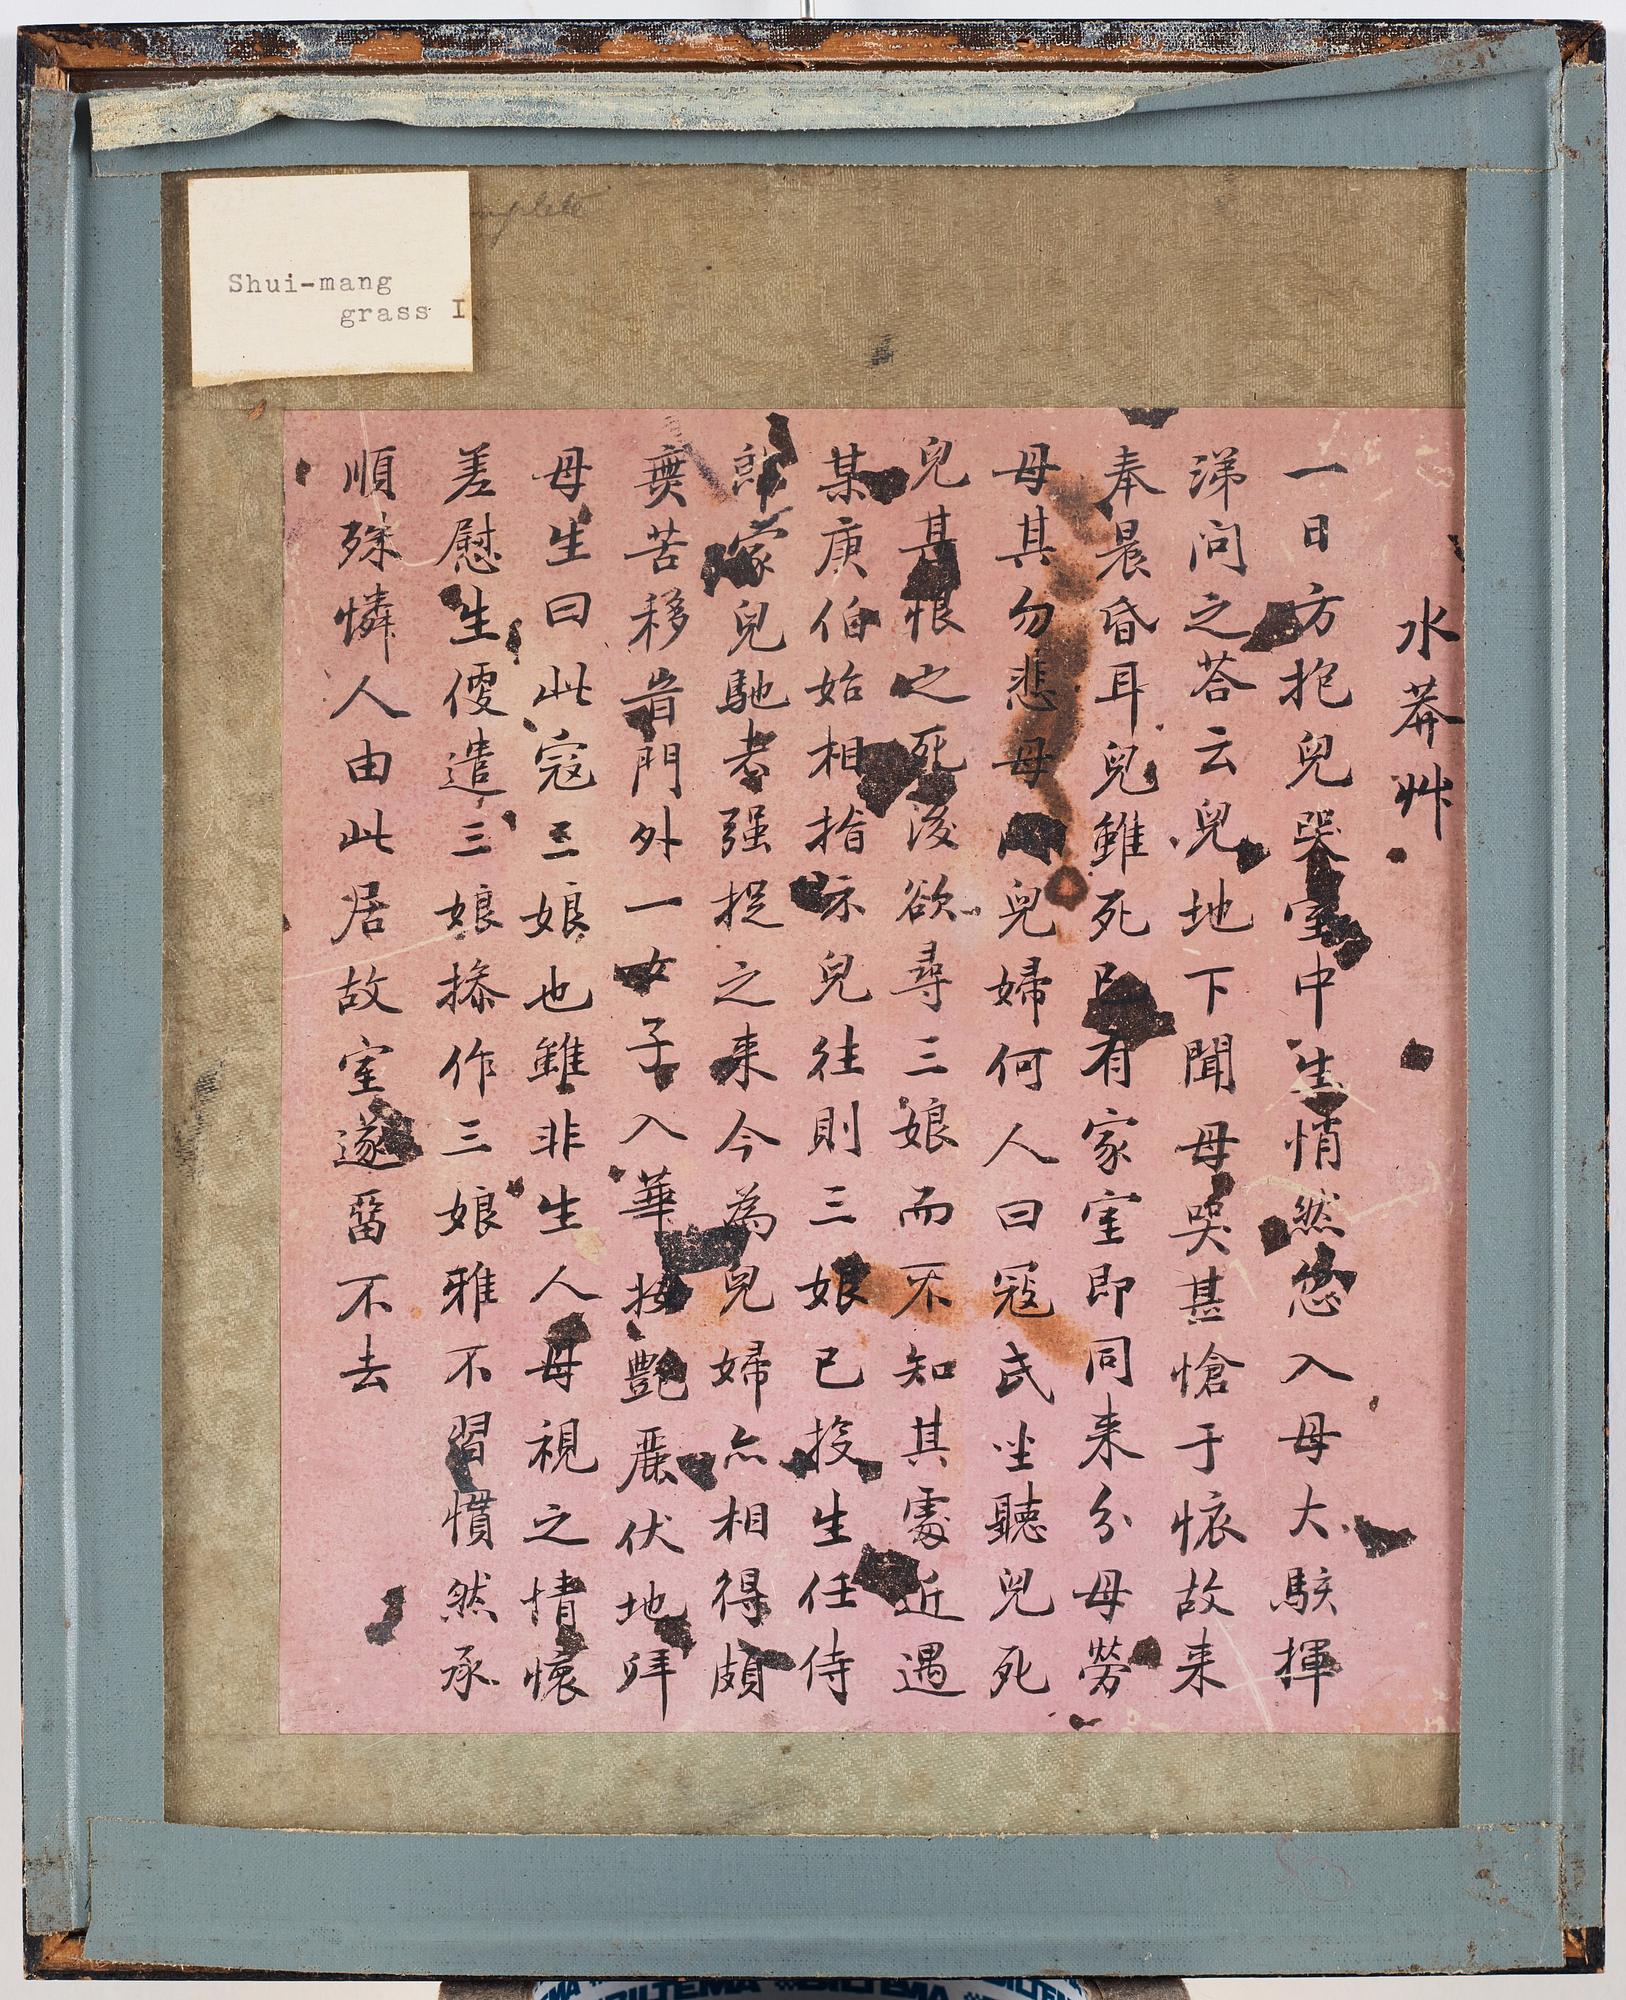 Shui-mang
grass I
水莽艸
一日方抱兒哭室中生悄然忽入母大駭揮
涕問之荅云兒地下聞母哭甚愴于懷故来
奉晨昏耳兒雖死已有家室即同来分母勞
母其勿悲母問兒婦何人曰寇氏坐聽兒死
兒甚恨之死後欲尋三娘而不知其處近遇
某庚伯始相指示兒往則三娘已投生任侍
郎家兒馳去强捉之来今為兒婦亦相得頗
無苦移旹門外一女子入華妝艷麗伏地拜
母生曰此寇三娘也雖非生人母視之情懷
差慰生便遣三娘操作三娘雅不習慣然承
順殊憐人由此居故室遂畱不去
BILTEMA